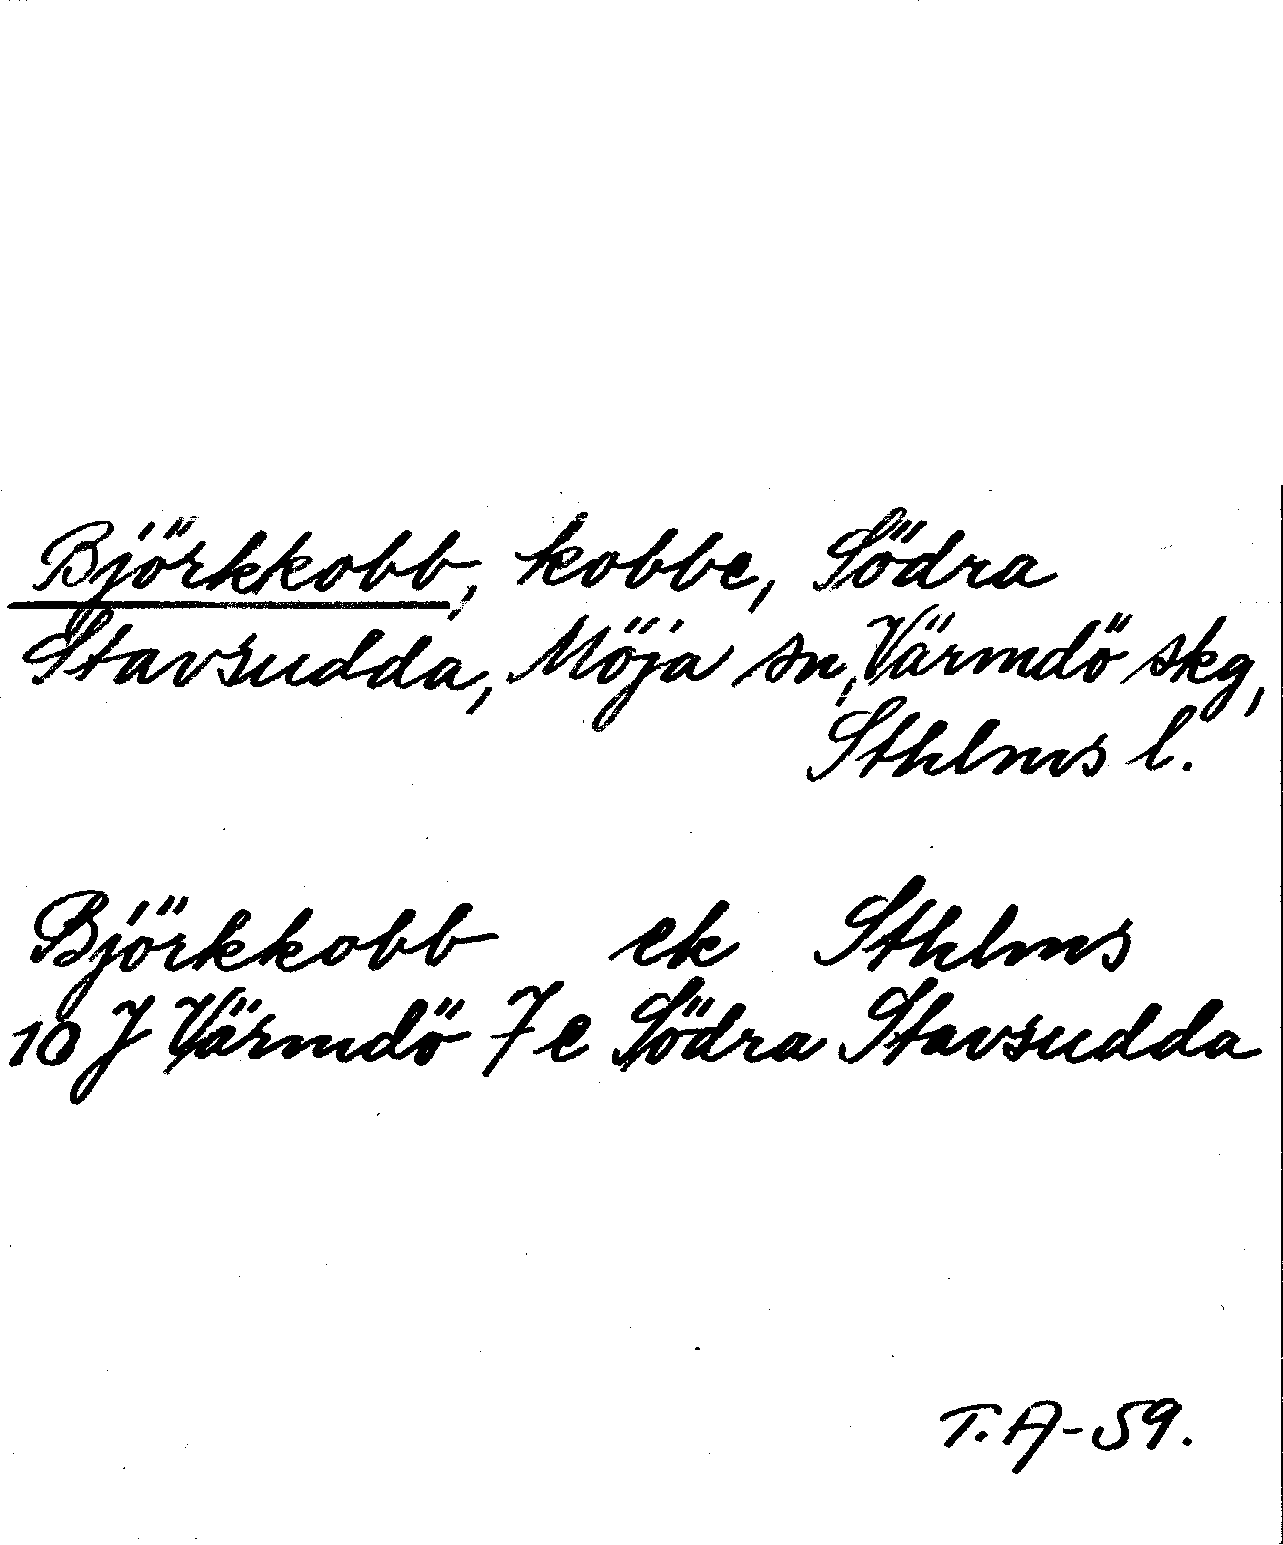 Björkkobb, kobbe, Södra
Stavsudda, Möja sn, Värmdö skg,
Sthlms l.
Björkkobb ek Sthlms
10 J Värmdö 7 e Södra Stavsudda
T. A-59.